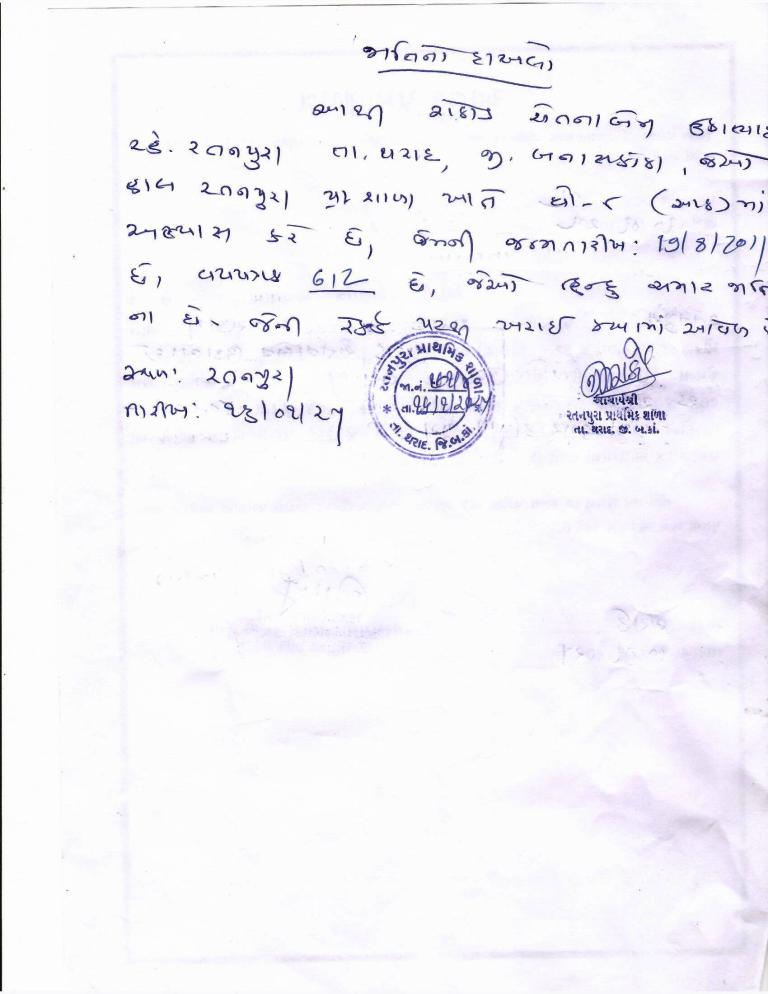 જાતિનો દાખલો
આથી ચેતનાબેન
રહે. રતનપુરા તા. થરાદ, જી. બનાસકાંઠા, જેઓ
હાલ રતનપુરા પ્રા શાળા ખાતે ધો-૮ માં
અભ્યાસ કરે છે, જેમની જન્મતારીખ: 19/8/2011
છે, વયપત્રક 612 છે, જેઓ હિન્દુ જાતિ
ના છે. જેની રેકર્ડ પરથી ખરાઈ કરવામાં આવેલ
સ્થળ: રતનપુરા
તારીખ: ૧૬/૦૧/૨૫
રતનપુરા પ્રાથમિક શાળા
જા.નં.
તા.
તા. થરાદ. જિ.બ.કાં.
આચાર્યશ્રી
રતનપુરા પ્રાથમિક શાળા
તા. થરાદ. જી. બ.કાં.